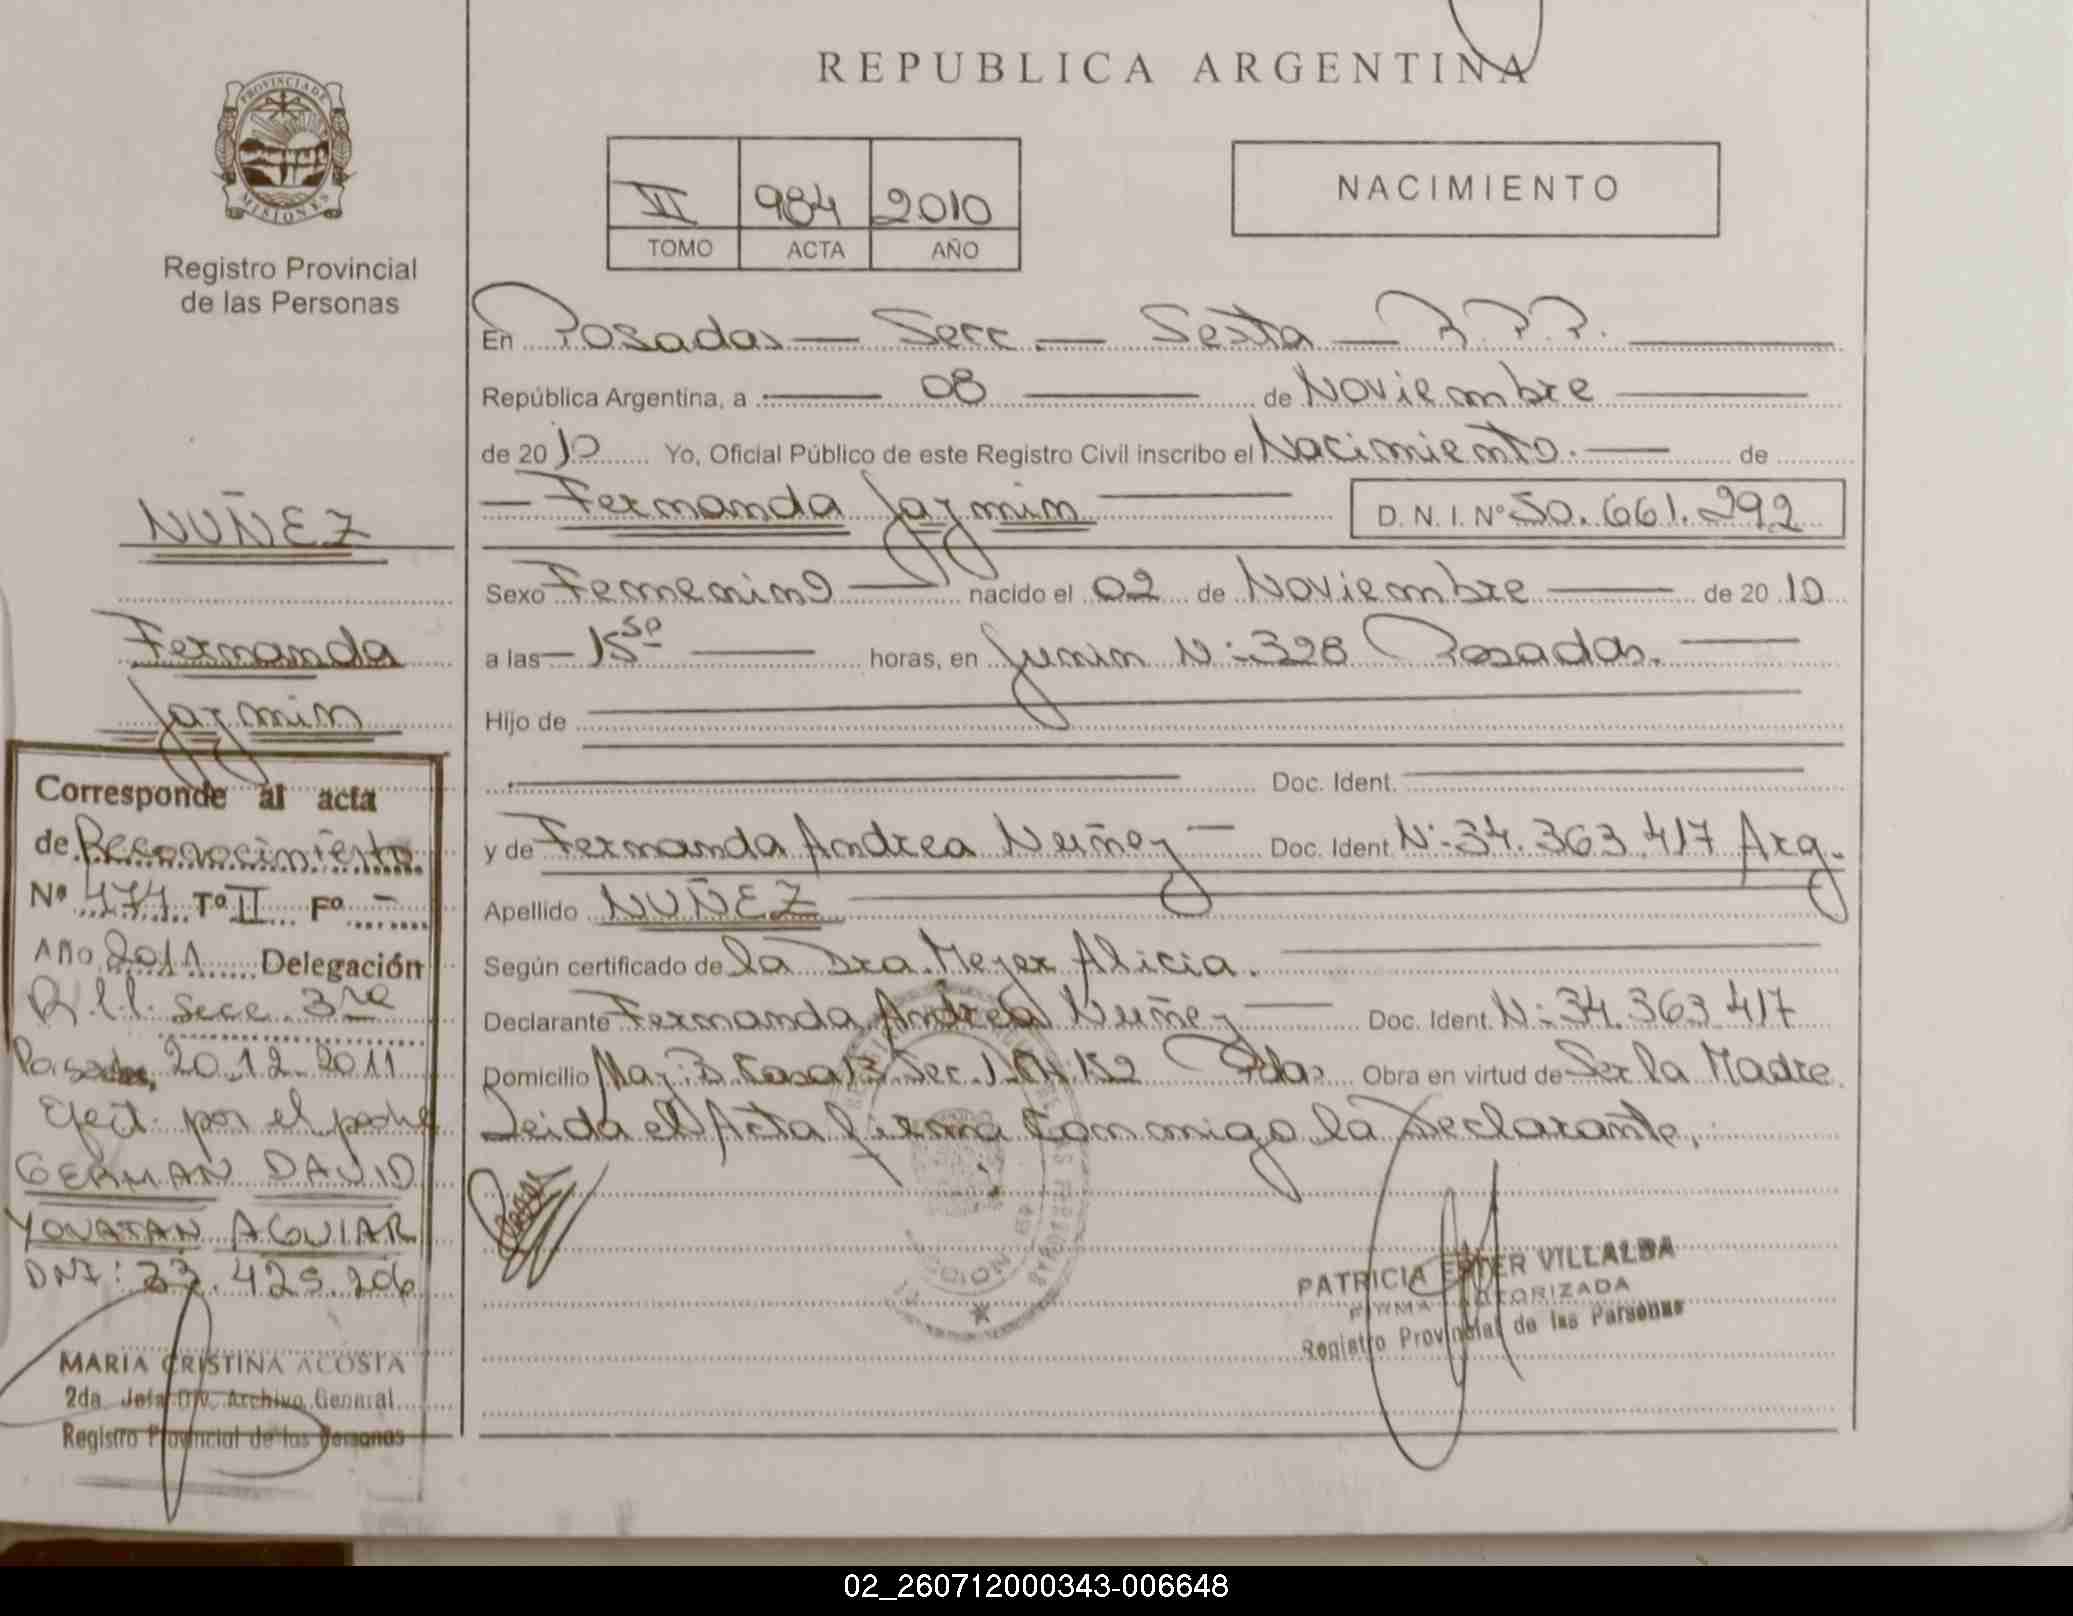 PROVINCIA DE
MISIONES
Registro Provincial
de las Personas
REPUBLICA ARGENTINA
II 984 2010
TOMO ACTA AÑO
NACIMIENTO
En Posadas — Secc. — Sexta —
República Argentina, a — 08 — de Noviembre —
de 2010 Yo, Oficial Público de este Registro Civil inscribo el Nacimiento. — de
— Fernanda Jazmin — D. N. I. Nº 50.661.292
Sexo Femenino — nacido el 02 de Noviembre — de 2010
a las — 15 50 — horas, en Junin N: 328 Posadas. —
Hijo de
Doc. Ident.
y de Fernanda Andrea Nuñez — Doc. Ident. N: 34.363.417 Arg.
Apellido NUÑEZ
Según certificado de la Dra. Meyer Alicia.
Declarante Fernanda Andrea Nuñez — Doc. Ident. N: 34.363.417
Domicilio Mz: B Casa 13 Sec. Pdas Obra en virtud de Ser la Madre.
Leida el Acta firma conmigo la Declarante,
PATRICIA ESTER VILLALBA
FIRMA AUTORIZADA
Registro Provincial de las Personas
NUÑEZ
Fernanda
Jazmin
Corresponde al acta
de Reconocimiento
Nº 474 Tº II Fº -
Año 2011 Delegación
Secc. 3ra
Posadas, 20.12.2011
Efect. por el padre
GERMAN DAVID
YONATAN AGUIAR
DNI: 33.425.206
MARIA CRISTINA ACOSTA
2da. Jefa Div. Archivo General
Registro Provincial de las Personas
02_260712000343-006648